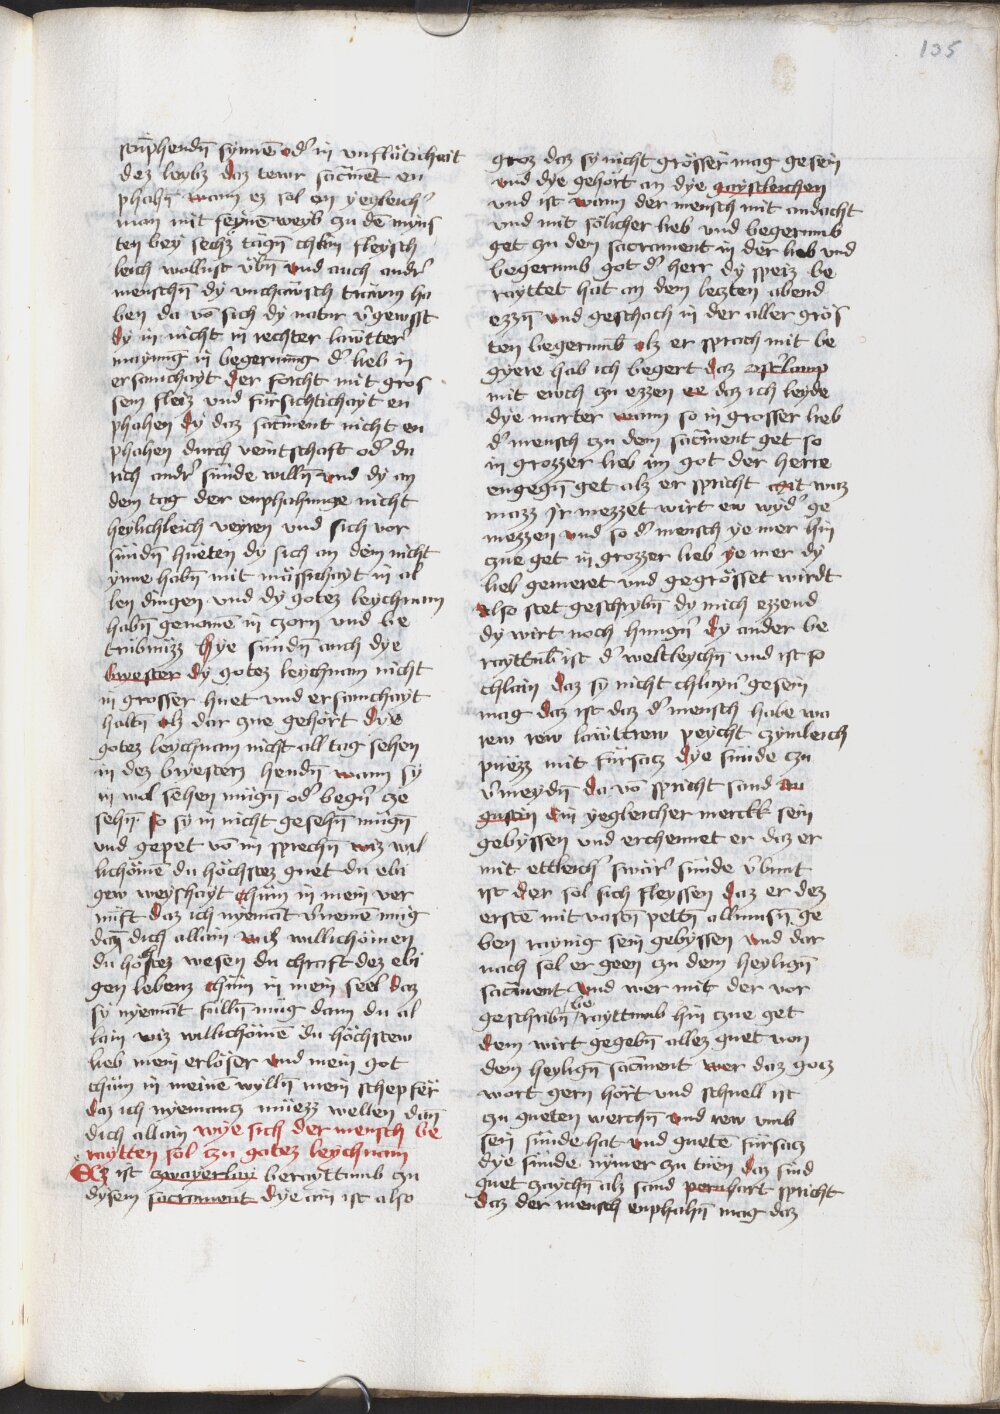 135
stüphendn̄ synnē od' in vnflätichait
dez leybz daz tewr sacīnēt en
phahn̄ wann ez sol ein yegleich'
man mit seynē weyb zu dē myns
ten bey sechz tagn̄ chain fleysch
leich wollust v̈bn̄ vnd auch andr'
menschn̄ dy vnchäwsch träwm ha
ben da vō sich dy natur v'gewsst
dy in nicht in rechter lawtter'
maynūg in begerung d' lieb in
ersamchayt der forcht mit gros
sem fleiz vnd fürsichtichayt en
phahen dy daz sacīnent nicht en
phahen durch veintschaft od' du
rich andr' sünde willn̄ vnd dy an
dem tag der enphahunge nicht
heylichleich veyren vnd sich vor
sündn̄ hüeten dy sich an dem nicht
ynne habn̄ mit mässichayt in al
len dingen vnd dy gotez leychnam
habn̄ genomē in czorn vnd be
trübnüzz hye sündn̄ auch dye
briester dy gotez leychnam nicht
in grosser huet vnd ersamchayt
haltn̄ alz dar zue gehört dye
gotez leychnam nicht all tag sehen
in dez briesterz hendn̄ wann sy
in wol sehen mügn̄ od' begn̄ cze
sehn̄ so sy in nicht gesehn̄ mügn̄
vnd gepet vō im sprechn̄ wiz wil
lichömē du höchstez guet du ebi
gew weyshayt chüm in mein ver
nüft daz ich nyemāt v'nemē müg
dan̄ dich allain wiz willichömen
du höstez wesen du chraft dez ebi
gen lebenz chüm in mein seel daz
sy nyemāt fülln̄ müg dann du al
lain wiz willichömē du höchstew
lieb mein erlöser vnd mein got
chüm in meinē wylln̄ mein schepfer
daz ich nyemancz müezz wellen dan̄
dich allain wye sich der mensch be
raytten sol zu gotez leychnam
Ez ist zwayerlay berayttumb zu
dysem sacrament dye ain ist also
groz daz sy nicht grösser mag gesein
vnd dye gehört an dye gaystleichen
vnd ist wann der mensch mit andacht
vnd mit sölicher lieb vnd begerumb
get zu dem sacrament in der lieb vnd
begerumb got d' herr dy speiz be
rayttet hat an dem leczten abend
ezzn̄ vnd geschach in der aller grös
ten begerumb alz er sprach mit be
gyere hab ich begert daz osterlamp
mit ewch zu ezzen ee daz ich leyde
dye marter wann so in grosser lieb
d' mensch czu dem sacīnent get so
in grozzer lieb im got der herre
engegn̄ get alz er spricht mit waz
mazz Ir mezzet wirt ew wyd' ge
mezzen vnd so d' mensch ye mer hin
czue get in grozzer lieb ye mer dy
lieb gemeret vnd gegrösset wirdt
also stet geschrybn̄ dy mich ezzend
dy wirt noch hungn̄ dy ander be
rayttūb ist d' weltleychn̄ vnd ist so
chlain daz sy nicht chlayn' gesein
mag daz ist daz d' mensch habe wa
rew rew lawttrew peycht czymleich
püezz mit fürsacz dye sünde czu
v'meydn̄ da vō spricht sand au
gustin ein yegleicher merckk sein
gebyssen vnd erchennet er daz er
mit ettleich' swär' sünde v'bunt
ist der sol sich fleyssen daz er dez
erstē mit vastn̄ pettn̄ allmusn̄ ge
ben raynig sein gebyssen vnd dar
nach sol er geen zu dem heylign̄
sacīnent vnd wer mit der vor
geschribn̄ be rayttumb hin czue get
dem wirt gegebn̄ allez guet von
dem heylign̄ sacīnent wer daz gocz
wort gern hört vnd schnell ist
zu gueten werchn̄ vnd rew vmb
sein sünde hat vnd guetē fürsacz
dye sünde nymer zu tüen daz sind
guet zaychn̄ alz sand pernhart spricht
daz der mensch enphahn̄ mag daz